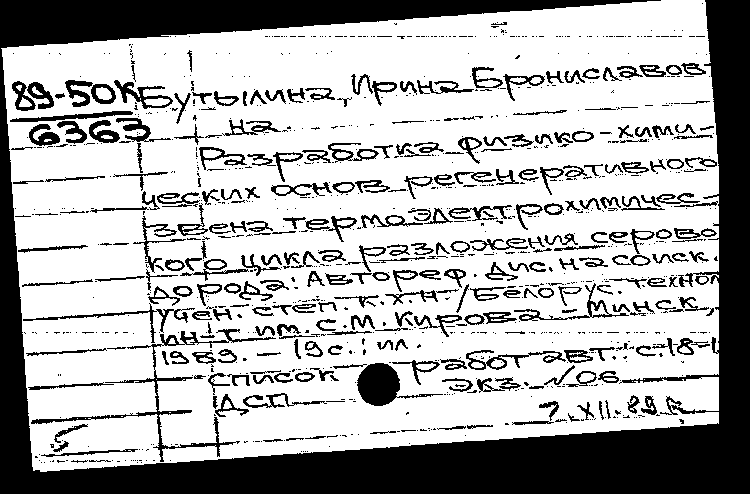 89-50К
6363
Бутылина, Ирина Брониславов-
на.
Разработка физико-хими-
ческих основ регенеративного
звена термоэлектрохимичес-
кого цикла разложения серово
дорода: Автореф. дис. на соиск.
учен. степ. к.х.н. / Белорус. технол
ин-т им. С.М. Кирова. - Минск,
1989. - 19 с.: ил.
Список работ авт.: с. 18-1
ДСП экз. №06
7.XII.89
5